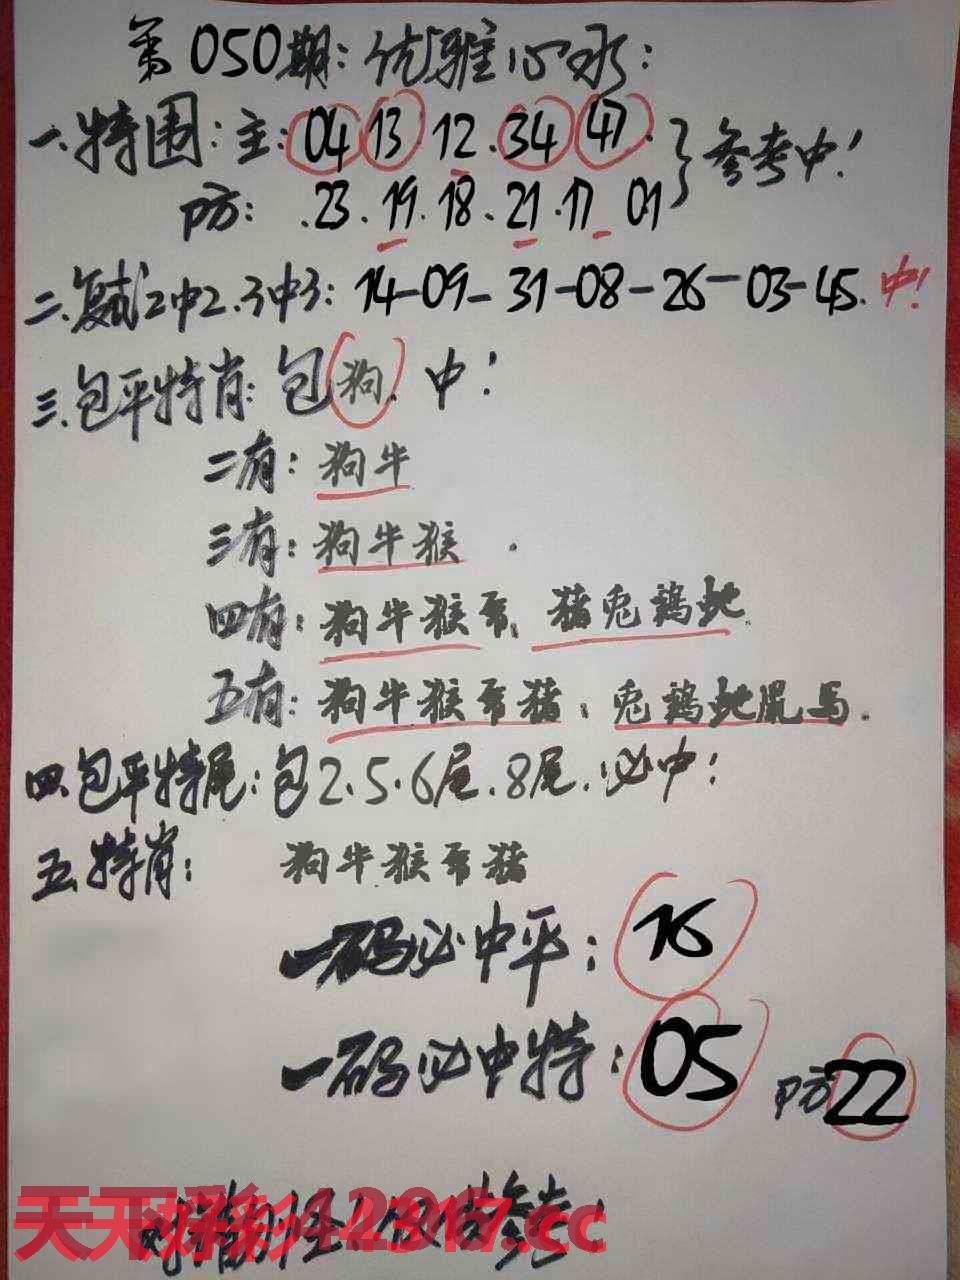 第050期：优雅心水：
一.特围：主：04 13 12.34 47. 参考中！
防：.23.19.18.21.17 01
二.复试2中2.3中3：14-09-31-08-26-03-45.中！
三.包平特肖：包狗.中！
二有：狗牛
三有：狗牛猴.
四有：狗牛猴 猪兔鸡蛇.
五有：狗牛猴 猪；兔鸡蛇鼠马.
四.包平特尾：包2.5.6尾.8尾.必中！
五.特肖：狗牛猴 猪
一码必中平：16
一码必中特：05 防22
参考！
天下彩 .cc